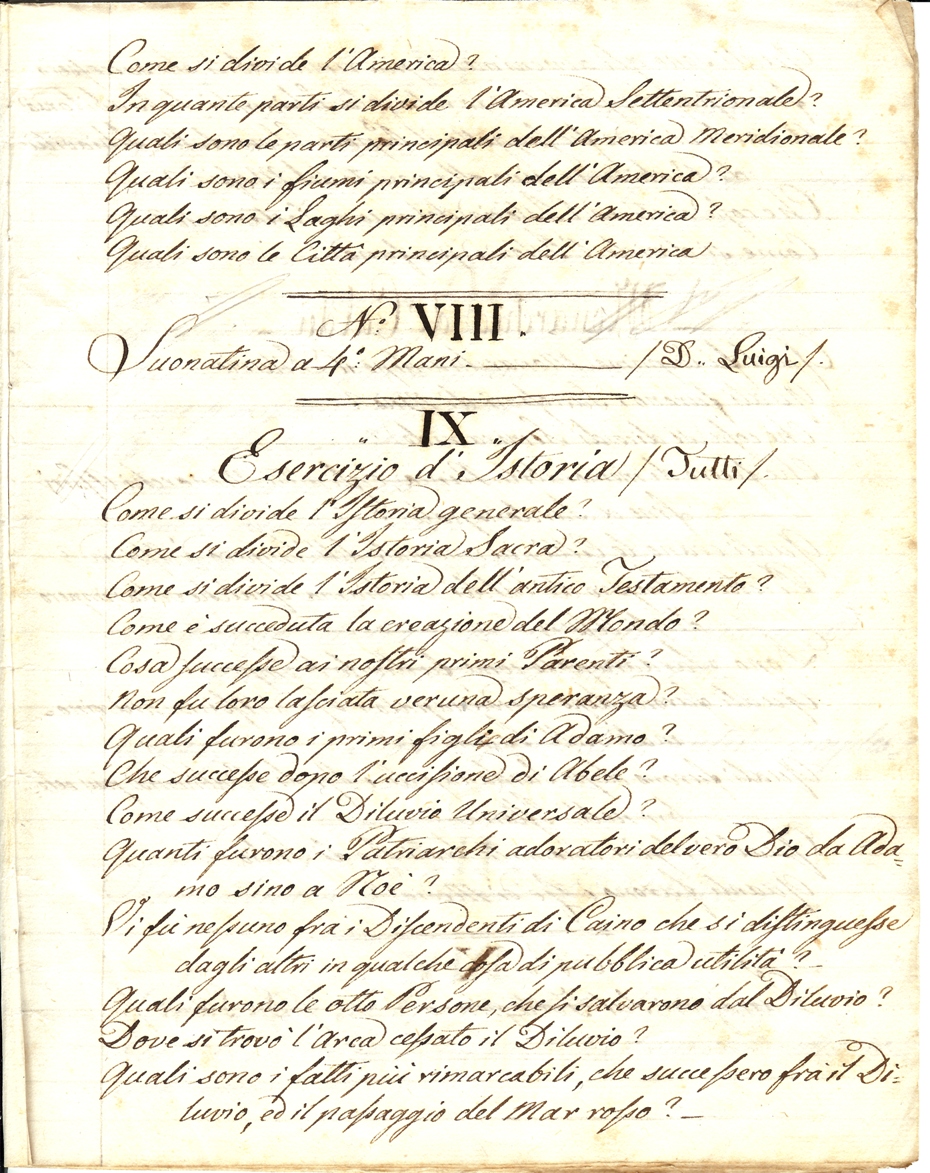 Come si divide l'America?
In quante parti si divide l'America Settentrionale?
Quali sono le parti principali dell'America Meridionale?
Quali sono i fiumi principali dell'America?
Quali sono i Laghi principali dell'America?
Quali sono le Città principali dell'America
N.º VIII.
Suonatina a 4.º Mani. / D.. Luigi /.
IX
Esercizio d'Istoria / Tutti /.
Come si divide l'Istoria generale?
Come si divide l'Istoria Sacra?
Come si divide l'Istoria dell'antico Testamento?
Come è succeduta la creazione del Mondo?
Cosa successe ai nostri primi Parenti?
Non fu loro lasciata veruna speranza?
Quali furono i primi figli di Adamo?
Che successe dopo l'uccisione di Abele?
Come successe il Diluvio Universale?
Quanti furono i Patriarchi adoratori del vero Dio da Ada=
mo sino a Noè?
Vi fù nessuno frà i Discendenti di Caino che si distinguesse
dagli altri in qualche cosa di pubblica utilità? _
Quali furono le otto Persone, che si salvarono dal Diluvio?
Dove si trovò l'Arca cessato il Diluvio?
Quali sono i fatti più rimarcabili, che successero frà il Di=
luvio, ed il passaggio del Mar rosso? _